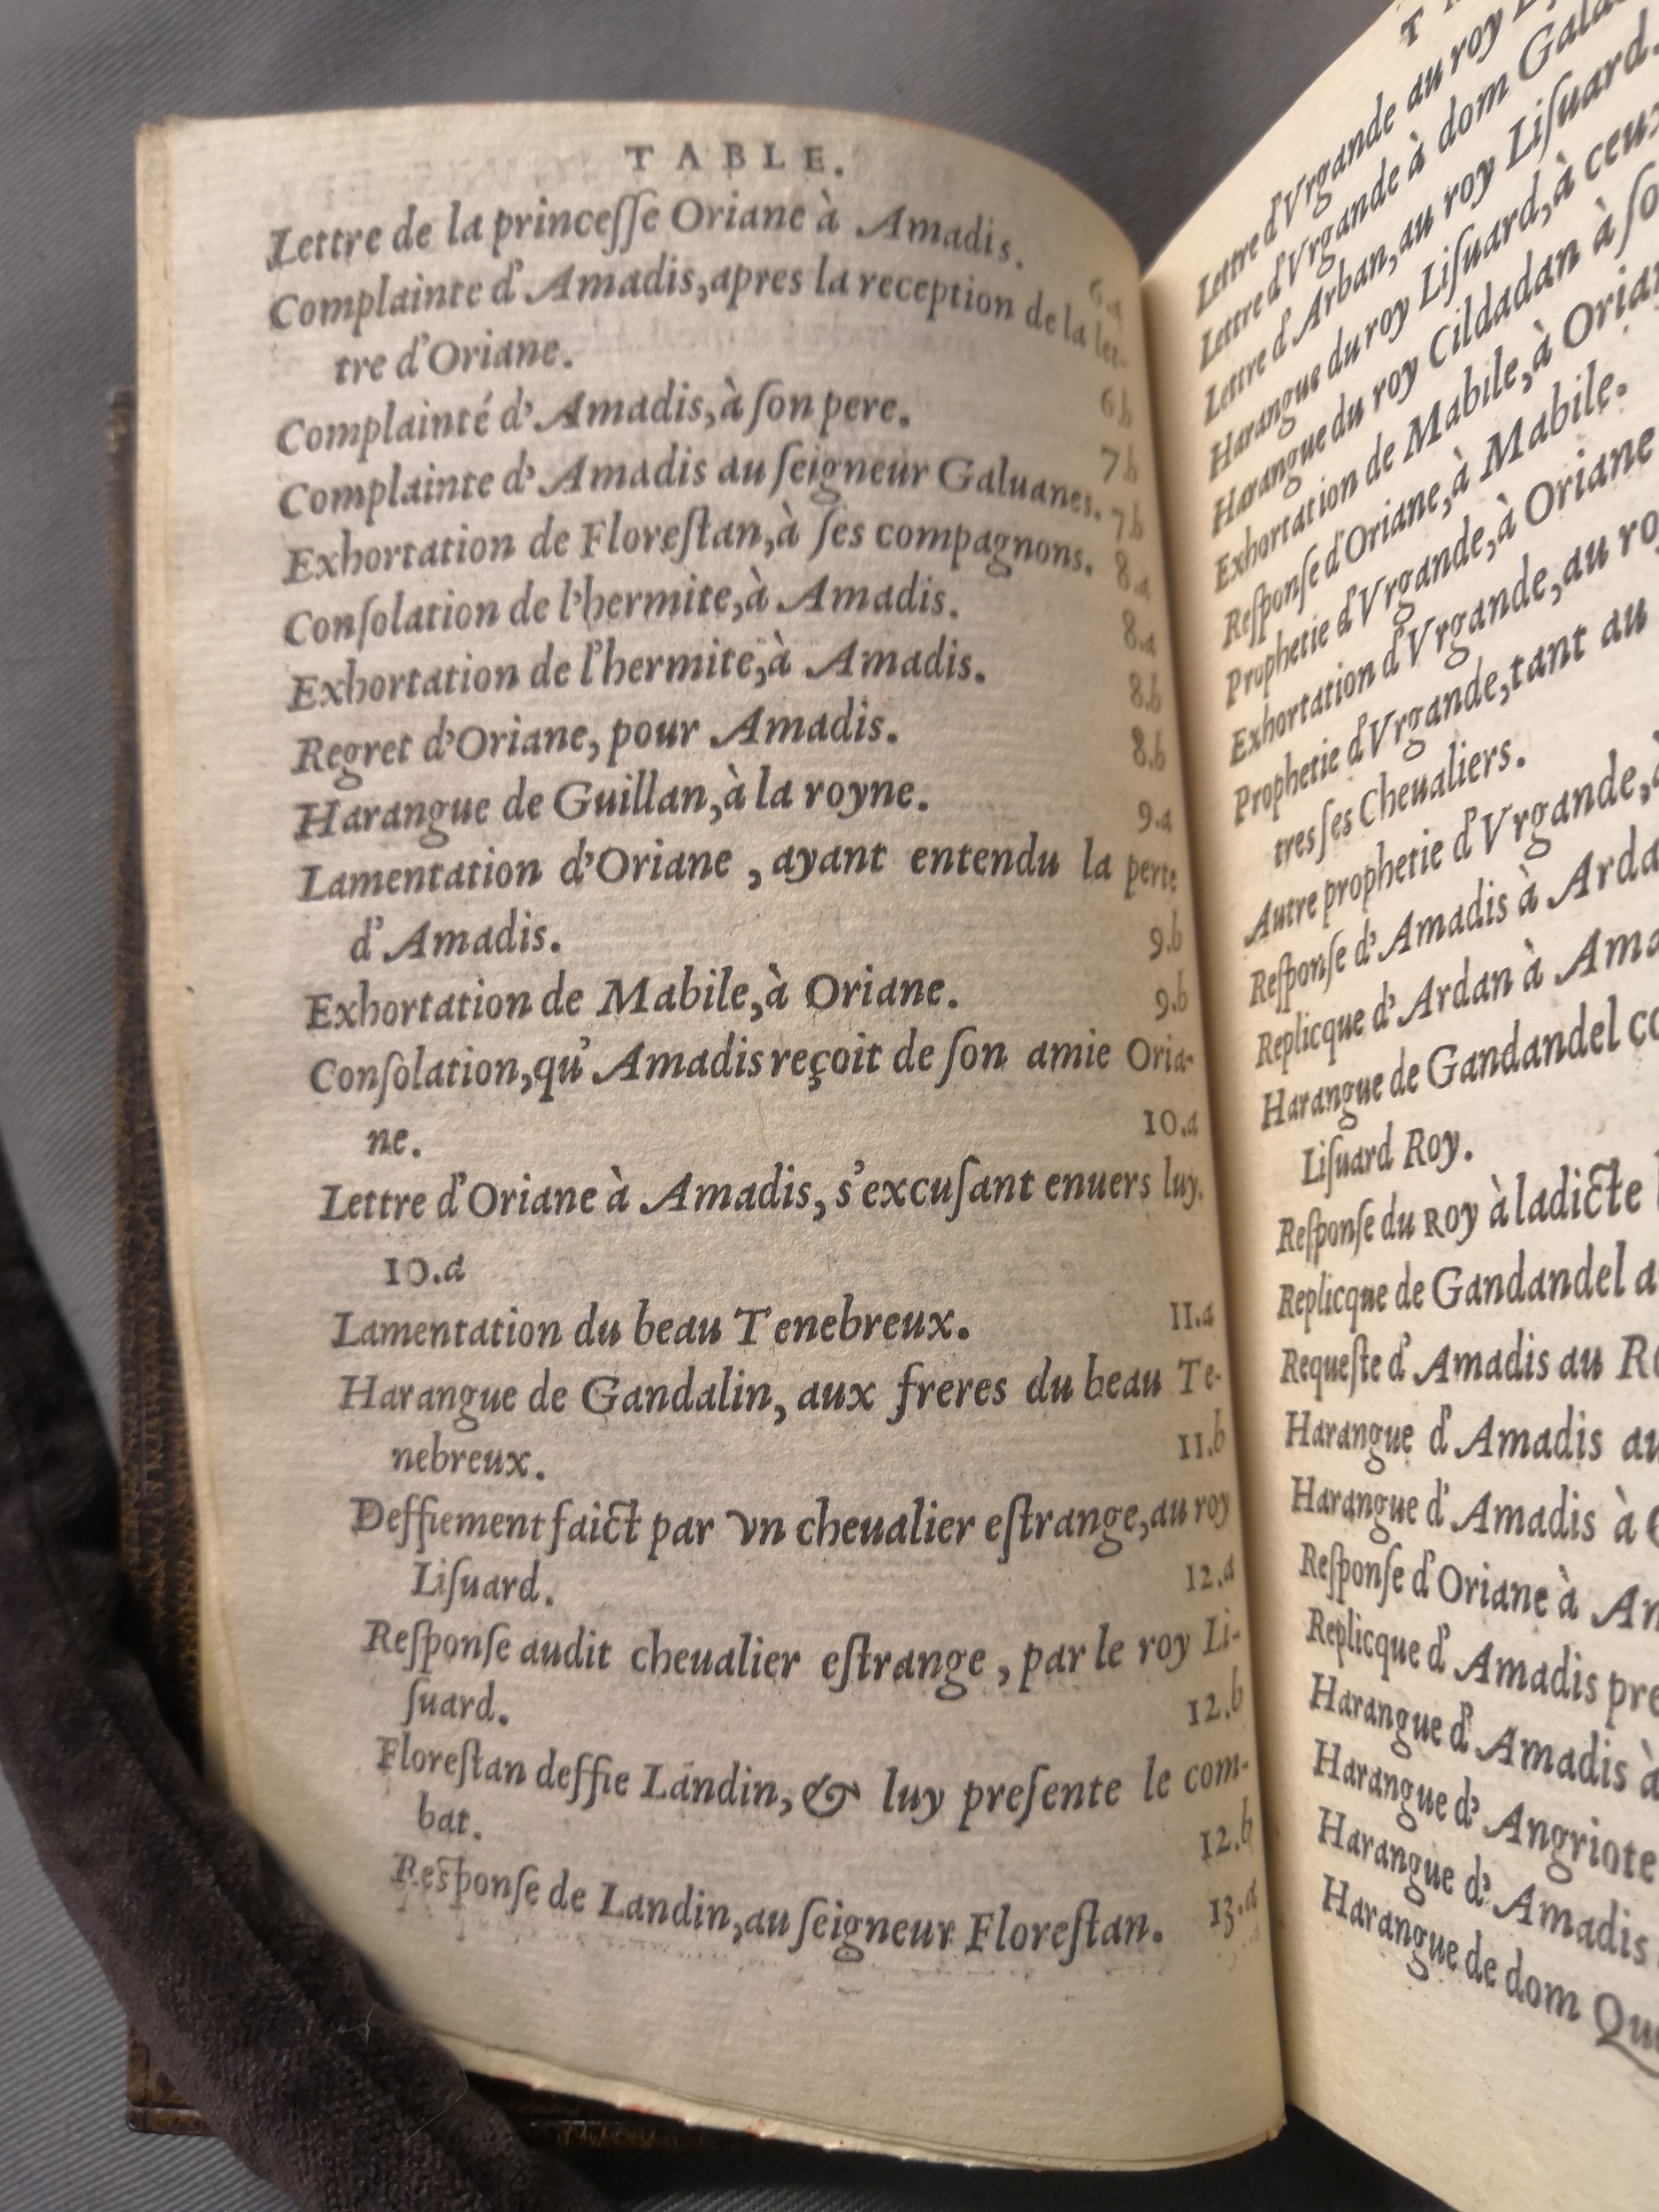 TABLE.
Lettre de la princeſſe Oriane à Amadis. 6.a
Complainte d'Amadis, apres la reception de la let-
tre d'Oriane. 6b
Complainté d'Amadis, à ſon pere. 7.b
Complainte d'Amadis au ſeigneur Galuanes. 7b
Exhortation de Floreſtan, à ſes compagnons. 8.a
Conſolation de l'hermite, à Amadis. 8.a
Exhortation de l'hermite, à Amadis. 8.b
Regret d'Oriane, pour Amadis. 8.b
Harangue de Guillan, à la royne. 9.a
Lamentation d'Oriane , ayant entendu la perte
d'Amadis. 9.b
Exhortation de Mabile, à Oriane. 9.b
Conſolation, qu'Amadis reçoit de ſon amie Oria-
ne. 10.a
Lettre d'Oriane à Amadis, s'excuſant enuers luy.
10.a
Lamentation du beau Tenebreux. 11.a
Harangue de Gandalin, aux freres du beau Te-
nebreux. 11.b
Deffiement faict par vn cheualier eſtrange, au roy
Liſuard. 12.a
Reſponſe audit cheualier eſtrange , par le roy Li-
ſuard. 12.b
Floreſtan deffie Landin, & luy preſente le com-
bat. 12.b
Reſponſe de Landin, au ſeigneur Floreſtan. 13.a
T
Lettre d'Vrgande au roy
Lettre d'Vrgande à dom
Lettre d'Arban, au roy Liſuard.
Harangue du roy Liſuard, à ceux
Harangue du roy Cildadan à
Exhortation de Mabile, à
Reſponſe d'Oriane, à Mabile.
Prophetie d'Vrgande, à Oriane
Exhortation d'Vrgande, au
Prophetie d'Vrgande, tant au
tres ſes Cheualiers.
Autre prophetie d'Vrgande,
Reſponſe d'Amadis à
Replicque d'Ardan à
Harangue de Gandandel
Liſuard Roy.
Reſponſe du ROY à ladicte
Replicque de Gandandel
Requeſte d'Amadis au
Harangue d'Amadis
Harangue d'Amadis à
Reſponſe d'Oriane à
Replicque d'Amadis
Harangue d'Amadis à
Harangue d'Angriote
Harangue d'Amadis
Harangue de dom